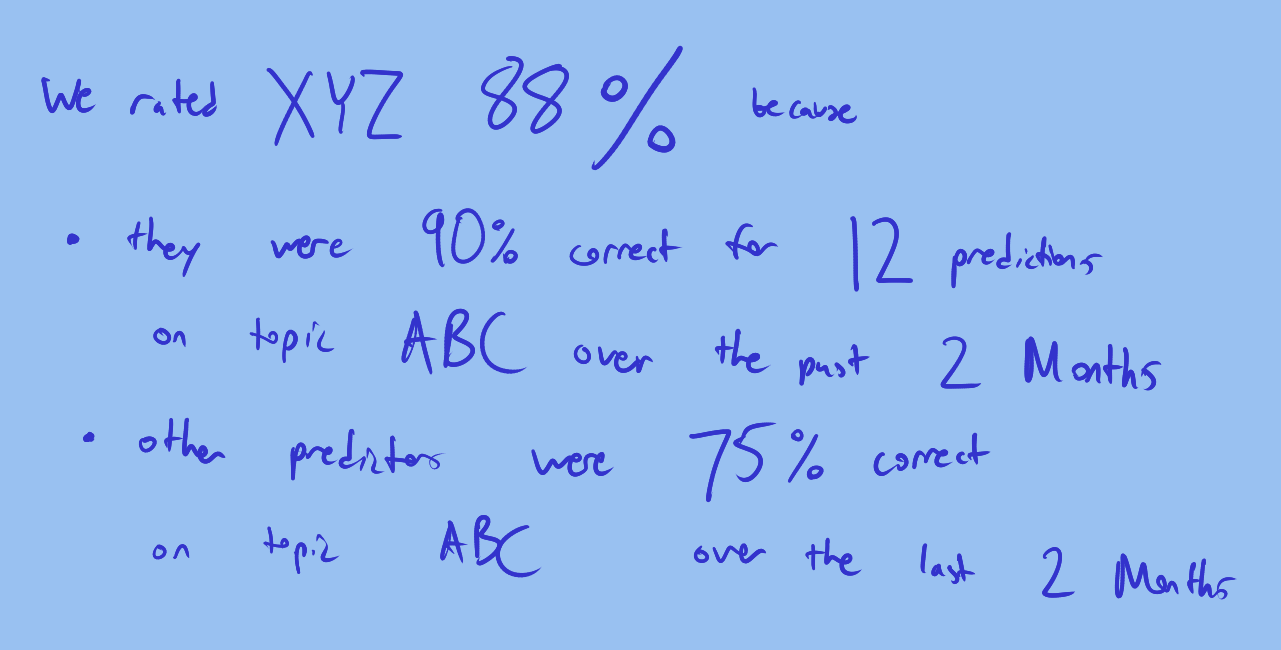 We rated XYZ 88% because
• they were 90% correct for 12 predictions
on topic ABC over the past 2 Months
• other predictors were 75% correct
on topic ABC over the last 2 Months